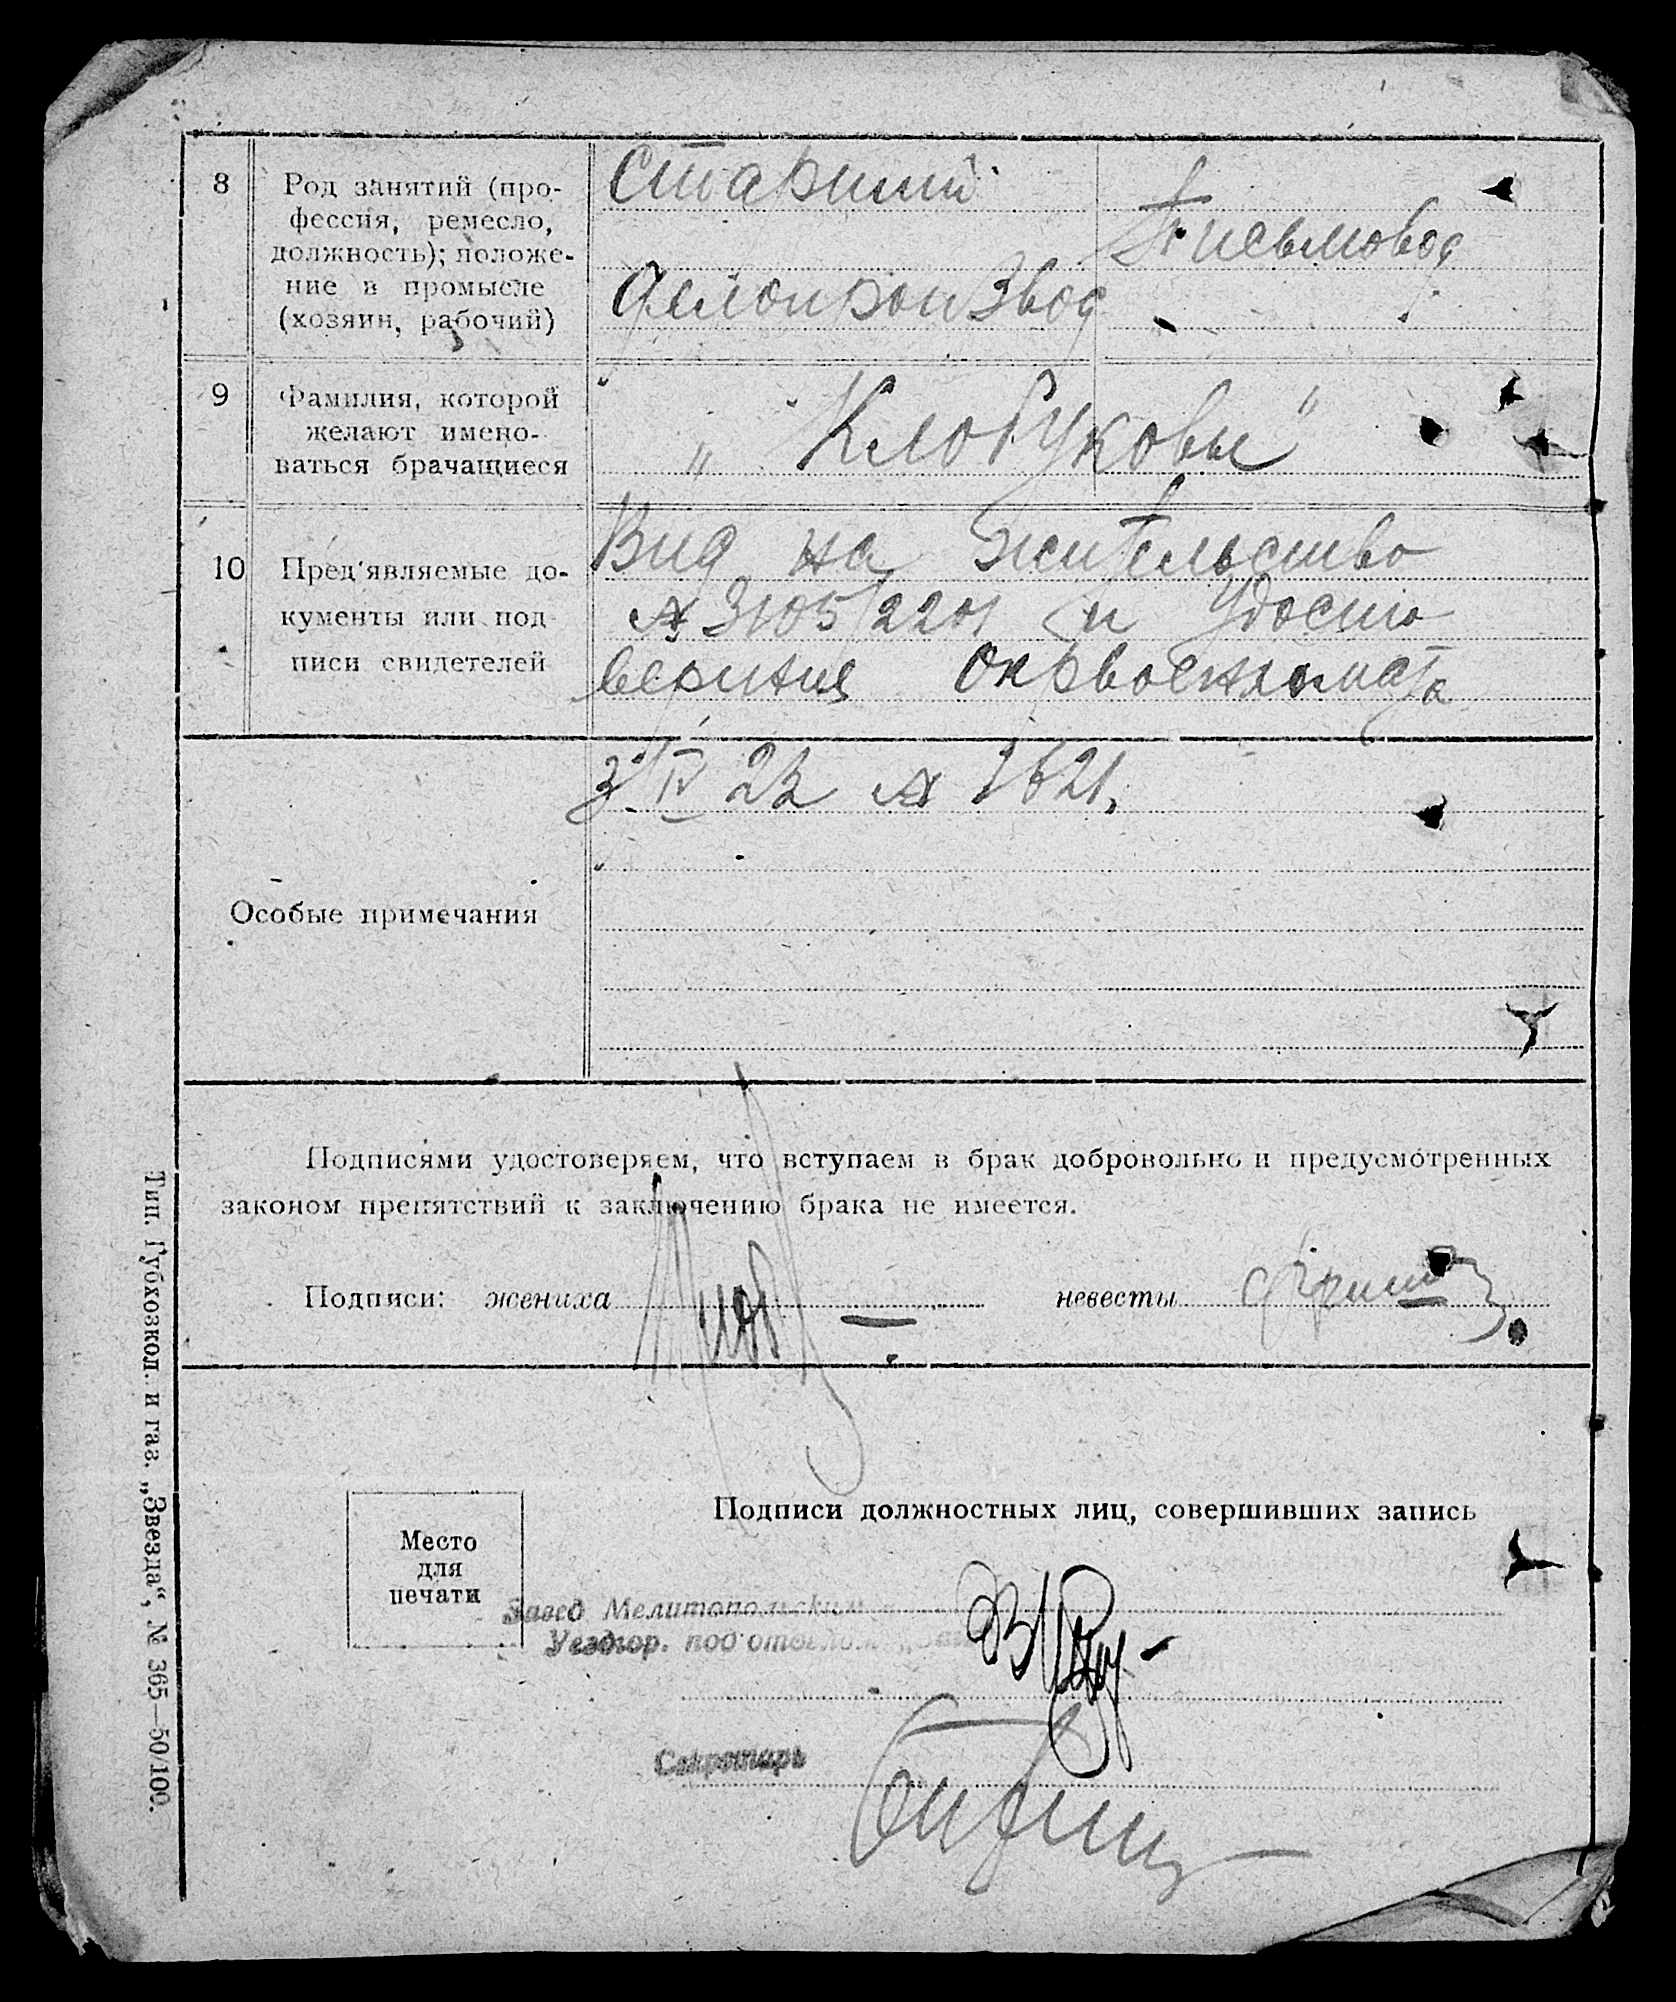 8
Род занятий (про-
фессия, ремесло,
должность); положе-
ние в промысле
(хозяин, рабочий)
Старший
Делопроизвод
Письмовод
9
Фамилия, которой
желают имено-
ваться брачащиеся
„ Клобуковы "
10
Пред'являемые до-
кументы или под-
писи свидетелей
Вид на жительство
№ 3105/2201 и Удосто
верения Окрвоенкомата
3/IV 23 № 1621.
Особые примечания
Подписями удостоверяем, что вступаем в брак добровольно и предусмотренных
законом препятствий к заключению брака не имеется.
Подписи: жениха
невесты
Подписи должностных лиц, совершивших запись
Место
для
печати
Завед Мелитопольским
Уездгор. подотделом
Секретарь
Тип. Губхозкол. и газ. „Звезда“, № 365—50/100.